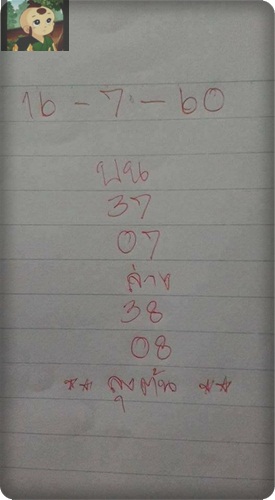 16 - 7 - 60
บน
37
07
ล่าง
38
08
** ลุงต้น **